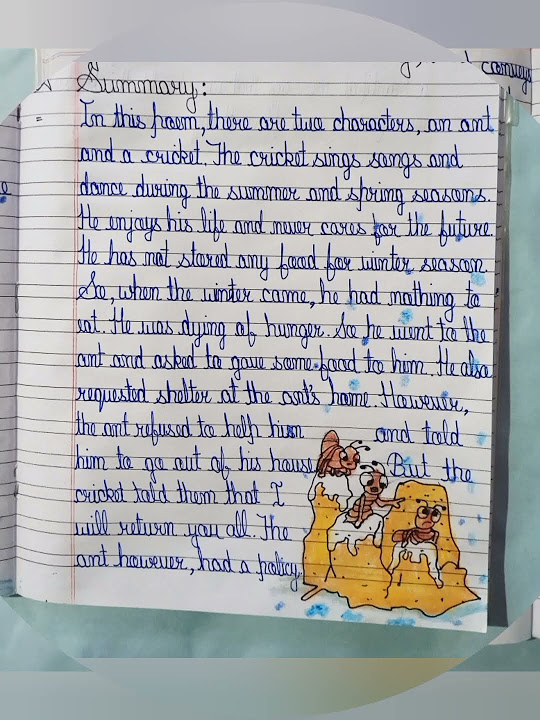 conveys
Summary:
In this poem, there are two characters, an ant
and a cricket. The cricket sings songs and
dance during the summer and spring seasons.
He enjoys his life and never cares for the future.
He has not stored any food for winter season.
So, when the winter came, he had nothing to
eat. He was dying of hunger. So he went to the
ant and asked to gave some food to him. He also
requested shelter at the ant's home. However,
the ant refused to help him and told
him to go out of his house But the
cricket told them that I
will return you all. The
ant however, had a policy,